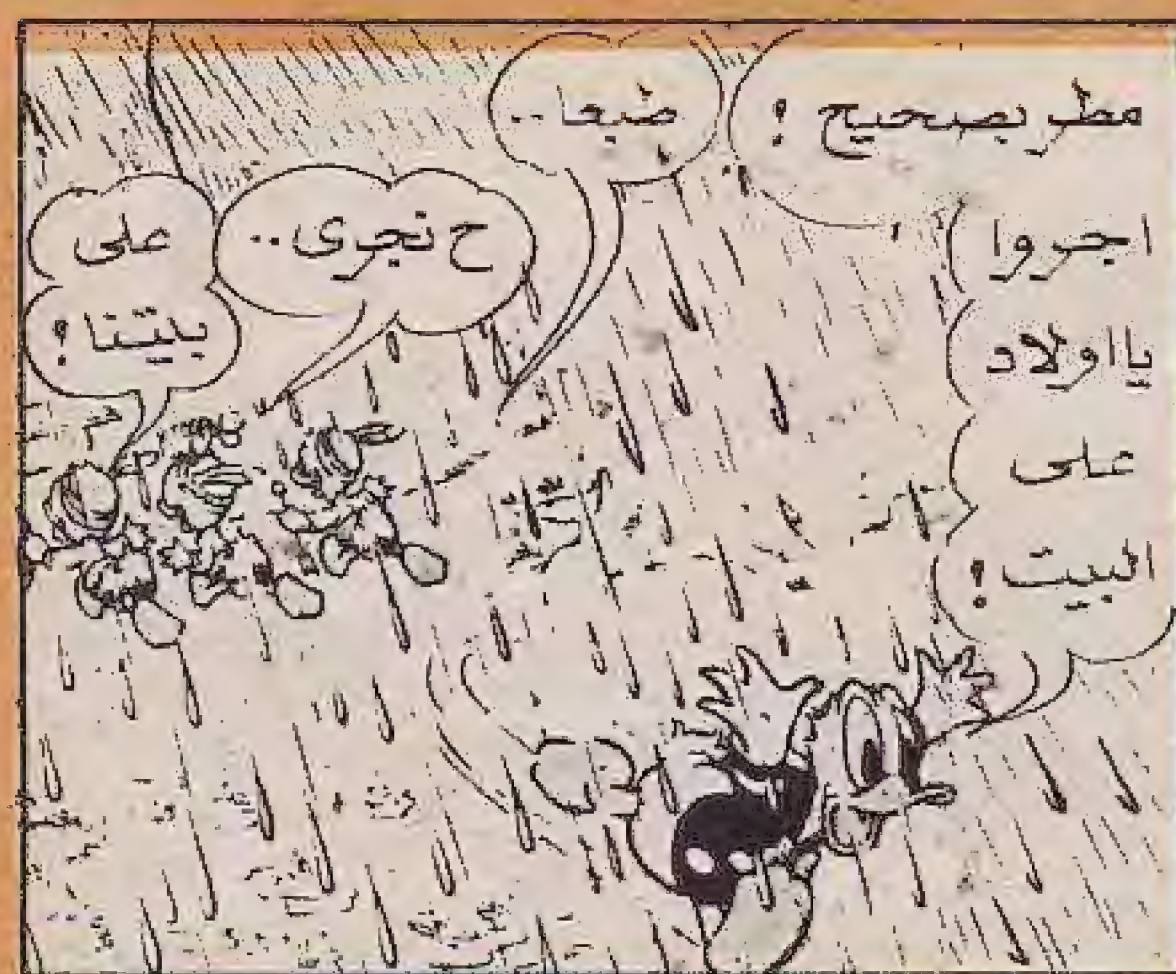 مطر بصحيح !
اجروا
يا اولاد
على
البيت !
طبعا ..
ح نجرى ..
على
بيتنا !